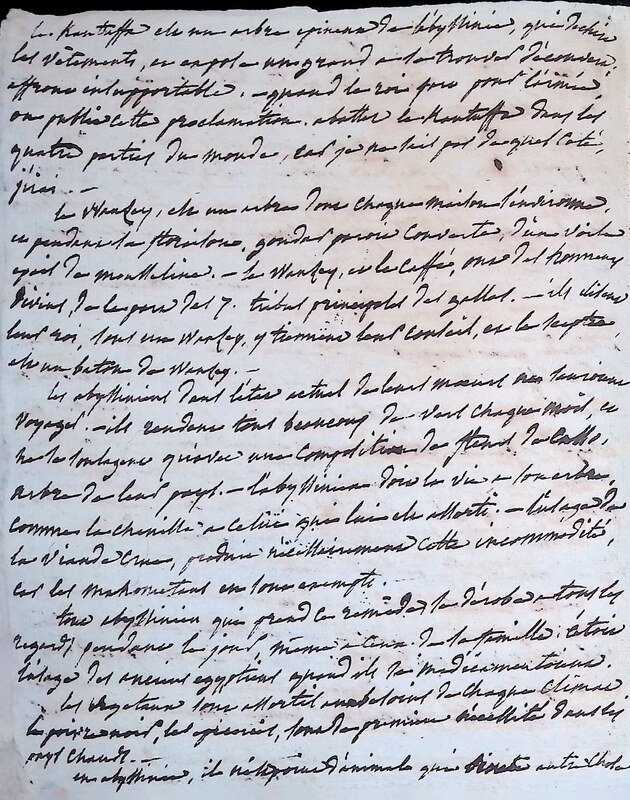 le Kantuffa est un arbre epineux de l'abyssinie, qui dechire
les vêtements, et expose un grand a se trouver découvert,
affront insupportable. - quand le roi part pour l'armée,
on publie cette proclamation. abattez le Kantuffa dans les
quatre parties du monde, car je ne sais pas de quel coté,
j'irai. -
le Wanzey, est un arbre dont chaque maison s'environne,
et pendant la floraison, gondar paroit couverte, d'un voile
epais de mousseline. - le Wanzey, et le Caffé, ont des honneurs
divins, de la part des 7. tribus principales des gallas. - ils elisent
leur roi, sous un Wanzey, y tiennent leur conseil, et le sceptre,
est un baton de Wanzey. -
les abyssiniens dans l'état actuel de leurs moeurs ne sauroient
voyager. - ils rendent tous beaucoup de vers chaque mois, et
ne se soulagent qu'avec une composition de fleurs de Casso,
arbre de leur pays. - l'abyssinien doit la vie a son arbre,
comme la chenille a celui qui lui est assorti. - l'usage de
la viande crue, produit nécessairement cette incommodité,
car les mahometans en sont exempts.
tout abyssinien qui prend ce remède se dérobe a tous les
regards pendant le jour, même a ceux de sa famille. c'étoit
l'usage des anciens egyptiens quand ils se médicamentoient.
les vegetaux sont assortis aux besoins de chaque climat
le poivre noir, les epiceries, sont de premiere nécessité dans les
pays chauds. -
en abyssinie, il n'est point d'animal qui autre chose